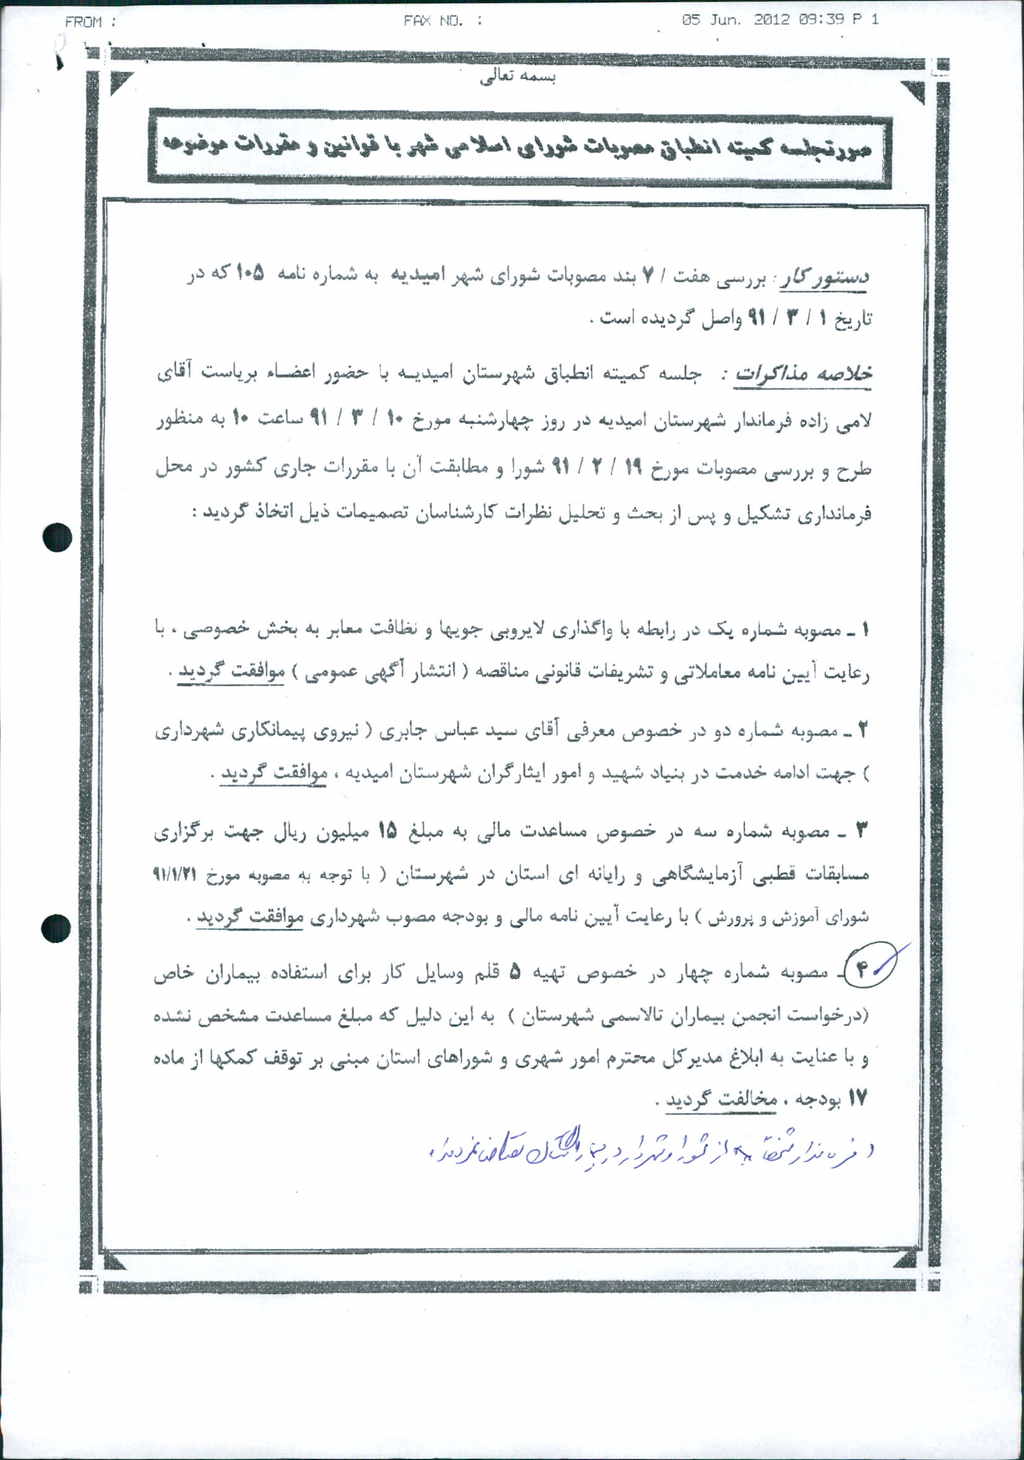 FROM : FAX NO. : 05 Jun. 2012 09:39 P 1
بسمه تعالی
صورتجلسه کمیته انطباق مصوبات شورای اسلامی شهر با قوانین و مقررات موضوعه
دستور کار : بررسی هفت / ۷ بند مصوبات شورای شهر امیدیه به شماره نامه ۱۰۵ که در
تاریخ ۱ / ۳ / ۹۱ واصل گردیده است .
خلاصه مذاکرات : جلسه کمیته انطباق شهرستان امیدیه با حضور اعضاء بریاست آقای
لامی زاده فرماندار شهرستان امیدیه در روز چهارشنبه مورخ ۱۰ / ۳ / ۹۱ ساعت ۱۰ به منظور
طرح و بررسی مصوبات مورخ ۱۹ / ۲ / ۹۱ شورا و مطابقت آن با مقررات جاری کشور در محل
فرمانداری تشکیل و پس از بحث و تحلیل نظرات کارشناسان تصمیمات ذیل اتخاذ گردید :
۱ ـ مصوبه شماره یک در رابطه با واگذاری لایروبی جویها و نظافت معابر به بخش خصوصی ، با
رعایت آیین نامه معاملاتی و تشریفات قانونی مناقصه ( انتشار آگهی عمومی ) موافقت گردید .
۲ ـ مصوبه شماره دو در خصوص معرفی آقای سید عباس جابری ( نیروی پیمانکاری شهرداری
) جهت ادامه خدمت در بنیاد شهید و امور ایثارگران شهرستان امیدیه ، موافقت گردید .
۳ ـ مصوبه شماره سه در خصوص مساعدت مالی به مبلغ ۱۵ میلیون ریال جهت برگزاری
مسابقات قطبی آزمایشگاهی و رایانه ای استان در شهرستان ( با توجه به مصوبه مورخ ۹۱/۱/۲۱
شورای آموزش و پرورش ) با رعایت آیین نامه مالی و بودجه مصوب شهرداری موافقت گردید .
۴ ـ مصوبه شماره چهار در خصوص تهیه ۵ قلم وسایل کار برای استفاده بیماران خاص
(درخواست انجمن بیماران تالاسمی شهرستان ) به این دلیل که مبلغ مساعدت مشخص نشده
و با عنایت به ابلاغ مدیرکل محترم امور شهری و شوراهای استان مبنی بر توقف کمکها از ماده
۱۷ بودجه ، مخالفت گردید .
فرماندار از شورا و شهردار در